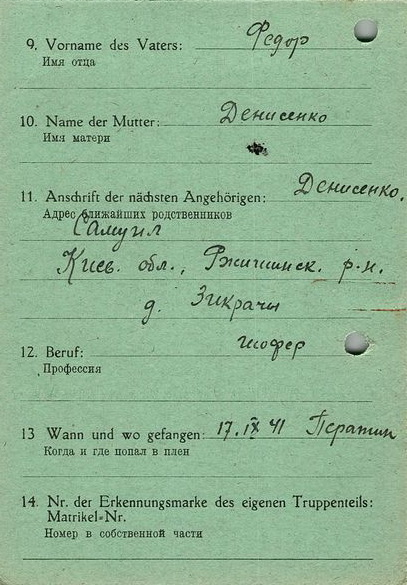 9. Vorname des Vaters: Федор
Имя отца
10. Name der Mutter: Денисенко
Имя матери
11. Anschrift der nächsten Angehörigen: Денисенко.
Адрес ближайших родственников
Самуил
Киев. обл., Ржищинск. р-н.
д. Зикрачи
12. Beruf: шофер
Профессия
13 Wann und wo gefangen: 17.IX 41 Ператин
Когда и где попал в плен
14. Nr. der Erkennungsmarke des eigenen Truppenteils:
Matrikel-Nr.
Номер в собственной части